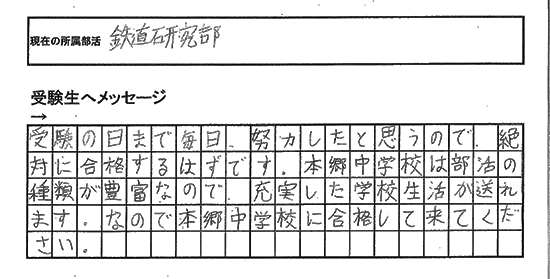 現在の所属部活 鉄道研究部
受験生へメッセージ
→
受験の日まで毎日、努力したと思うので、絶
対に合格するはずです。本郷中学校は部活の
種類が豊富なので、充実した学校生活が送れ
ます。なので本郷中学校に合格して来てくだ
さい。